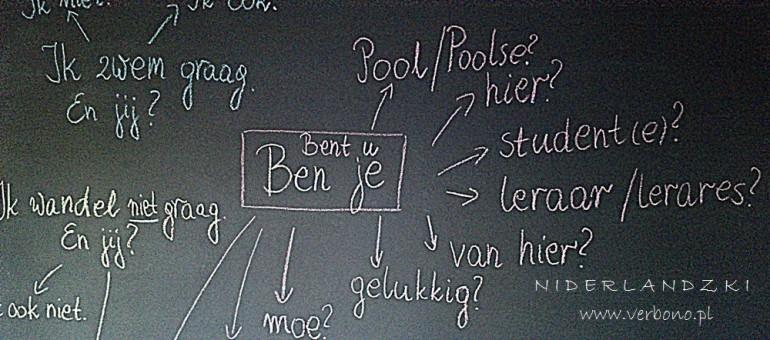 Ik niet.
Ik ook.
Ik zwem graag.
En jij?
Ik wandel niet graag.
En jij?
ook niet.
Bent u
Ben je
Pool/Poolse?
hier?
student(e)?
leraar/lerares?
van hier?
gelukkig?
moe?
NIDERLANDZKI
www.verbono.pl